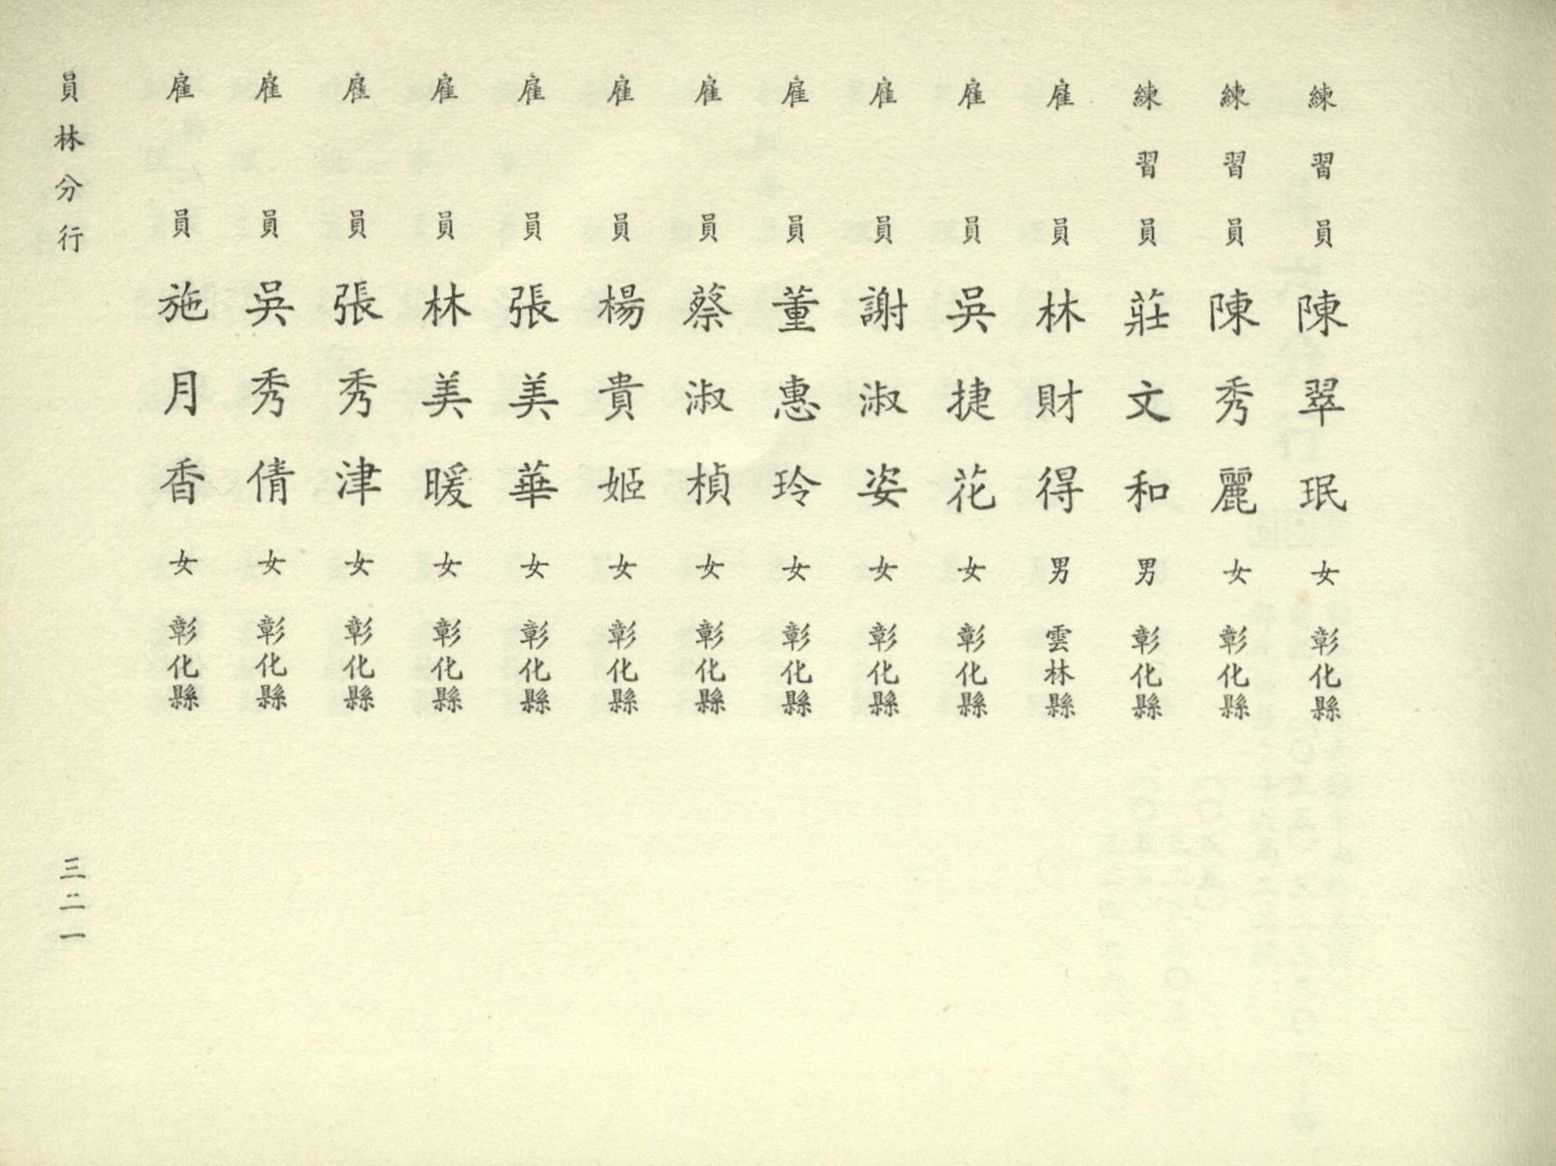 練習員陳翠珉女彰化縣
練習員陳秀麗女彰化縣
練習員莊文和男彰化縣
雇員林財得男雲林縣
雇員吳捷花女彰化縣
雇員謝淑姿女彰化縣
雇員董惠玲女彰化縣
雇員蔡淑楨女彰化縣
雇員楊貴姬女彰化縣
雇員張美華女彰化縣
雇員林美暖女彰化縣
雇員張秀津女彰化縣
雇員吳秀倩女彰化縣
雇員施月香女彰化縣
員林分行
三二一